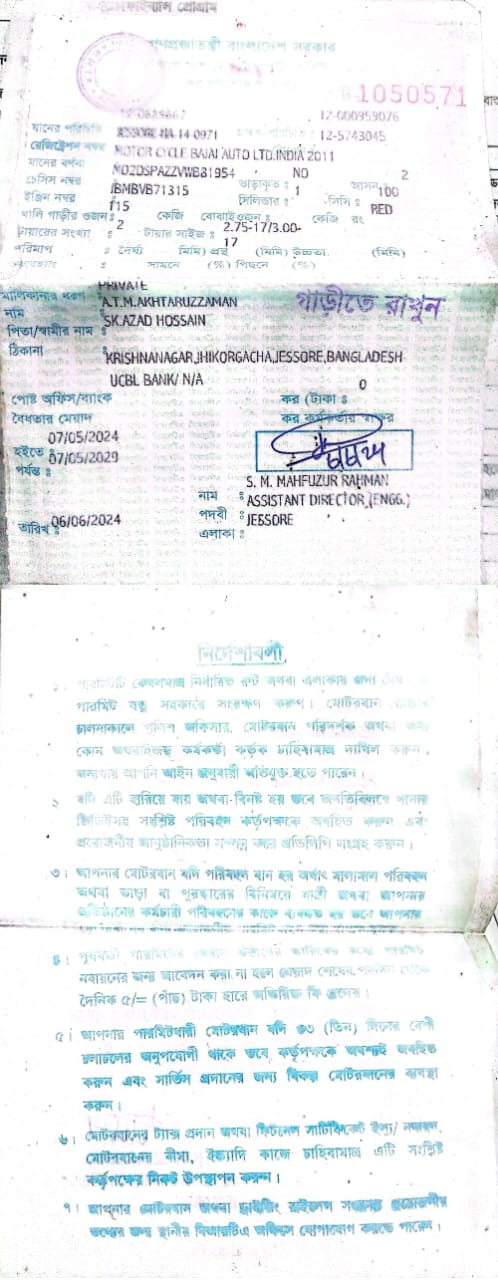 গণপ্রজাতন্ত্রী বাংলাদেশ সরকার
1050571
12-000959076
যানের পরিচিতি 12-5743045
রেজিষ্ট্রেশন নম্বর 14-0971
যানের বর্ণনা MOTOR CYCLE BAJAJ AUTO LTD.INDIA 2011
চেসিস নম্বর MD2DSPAZZVWB81954 ভাড়াকৃত : NO আসন 2
ইঞ্জিন নম্বর JBMBVB71315 সিলিন্ডার : 1 সিসি : 100
খালি গাড়ীর ওজন : 115 কেজি বোঝাই ওজন : কেজি রং RED
টায়ারের সংখ্যা : 2 টায়ার সাইজ : 2.75-17/3.00-17
পরিমাপ : দৈর্ঘ্য (মিমি) প্রস্থ (মিমি) উচ্চতা (মিমি)
সামনে (%) পিছনে (%)
মালিকানার ধরণ PRIVATE
নাম A.T.M.AKHTARUZZAMAN গাড়ীতে রাখুন
পিতা/স্বামীর নাম : SK.AZAD HOSSAIN
ঠিকানা KRISHNANAGAR,JHIKORGACHA,JESSORE,BANGLADESH
UCBL BANK/ N/A
পোষ্ট অফিস/ব্যাংক কর (টাকা : 0
বৈধতার মেয়াদ কর কর্মকর্তার স্বাক্ষর
হইতে 07/05/2024
পর্যন্ত : 07/05/2029
S. M. MAHFUZUR RAHMAN
নাম : ASSISTANT DIRECTOR (ENGG.)
তারিখ : 06/06/2024 পদবী : JESSORE
এলাকা :
নির্দেশাবলী
১। পারমিটটি কেবলমাত্র নির্ধারিত রুট অথবা এলাকার জন্য
পারমিট বহু সহকারে সংরক্ষণ করুণ। মোটরযান
চালনাকালে পুলিশ অফিসার, মোটরযান পরিদর্শক অথবা অন্য
কোন কর্মকর্তা কর্তৃক চাহিবামাত্র দাখিল করুন,
অন্যথায় আপনি আইন অনুযায়ী অভিযুক্ত হতে পারেন।
২ যদি এটি হারিয়ে যায় অথবা বিনষ্ট হয় তবে অনতিবিলম্বে থানার
সংশ্লিষ্ট পরিবহন কর্তৃপক্ষকে অবহিত করুন এবং
প্রয়োজনীয় আনুষ্ঠানিকতা সম্পন্ন করে প্রতিলিপি সংগ্রহ করুন।
৩। আপনার মোটরযান যদি পরিবহন যান হয় অর্থাৎ মালামাল পরিবহন
অথবা ভাড়া বা পুরস্কারের বিনিময়ে যাত্রী অথবা আপনার
প্রতিষ্ঠানের কর্মচারী পরিবহনের কাজে ব্যবহৃত হয় তবে আপনার
৪। পূর্ববর্তী পারমিটের
নবায়নের জন্য আবেদন করা না হলে মেয়াদ শেষের
দৈনিক ৫/= (পাঁচ) টাকা হারে অতিরিক্ত ফি
৫। আপনার পারমিটধারী মোটরযান যদি ০৩ (তিন) দিনের বেশী
চলাচলের অনুপযোগী থাকে তবে কর্তৃপক্ষকে অবশ্যই অবহিত
করুন এবং সার্ভিস প্রদানের জন্য বিকল্প মোটরযানের ব্যবস্থা
করুন।
৬। মোটরযানের ট্যাক্স প্রদান অথবা ফিটনেস সার্টিফিকেট ইস্যু/ নবায়ন,
মোটরযানের বীমা, ইত্যাদি কাজে চাহিবামাত্র এটি সংশ্লিষ্ট
কর্তৃপক্ষের নিকট উপস্থাপন করুন।
৭। আপনার মোটরযান অথবা ড্রাইভিং লাইসেন্স সংক্রান্ত প্রয়োজনীয়
তথ্যের জন্য স্থানীয় বিআরটিএ অফিসে যোগাযোগ করতে পারেন।